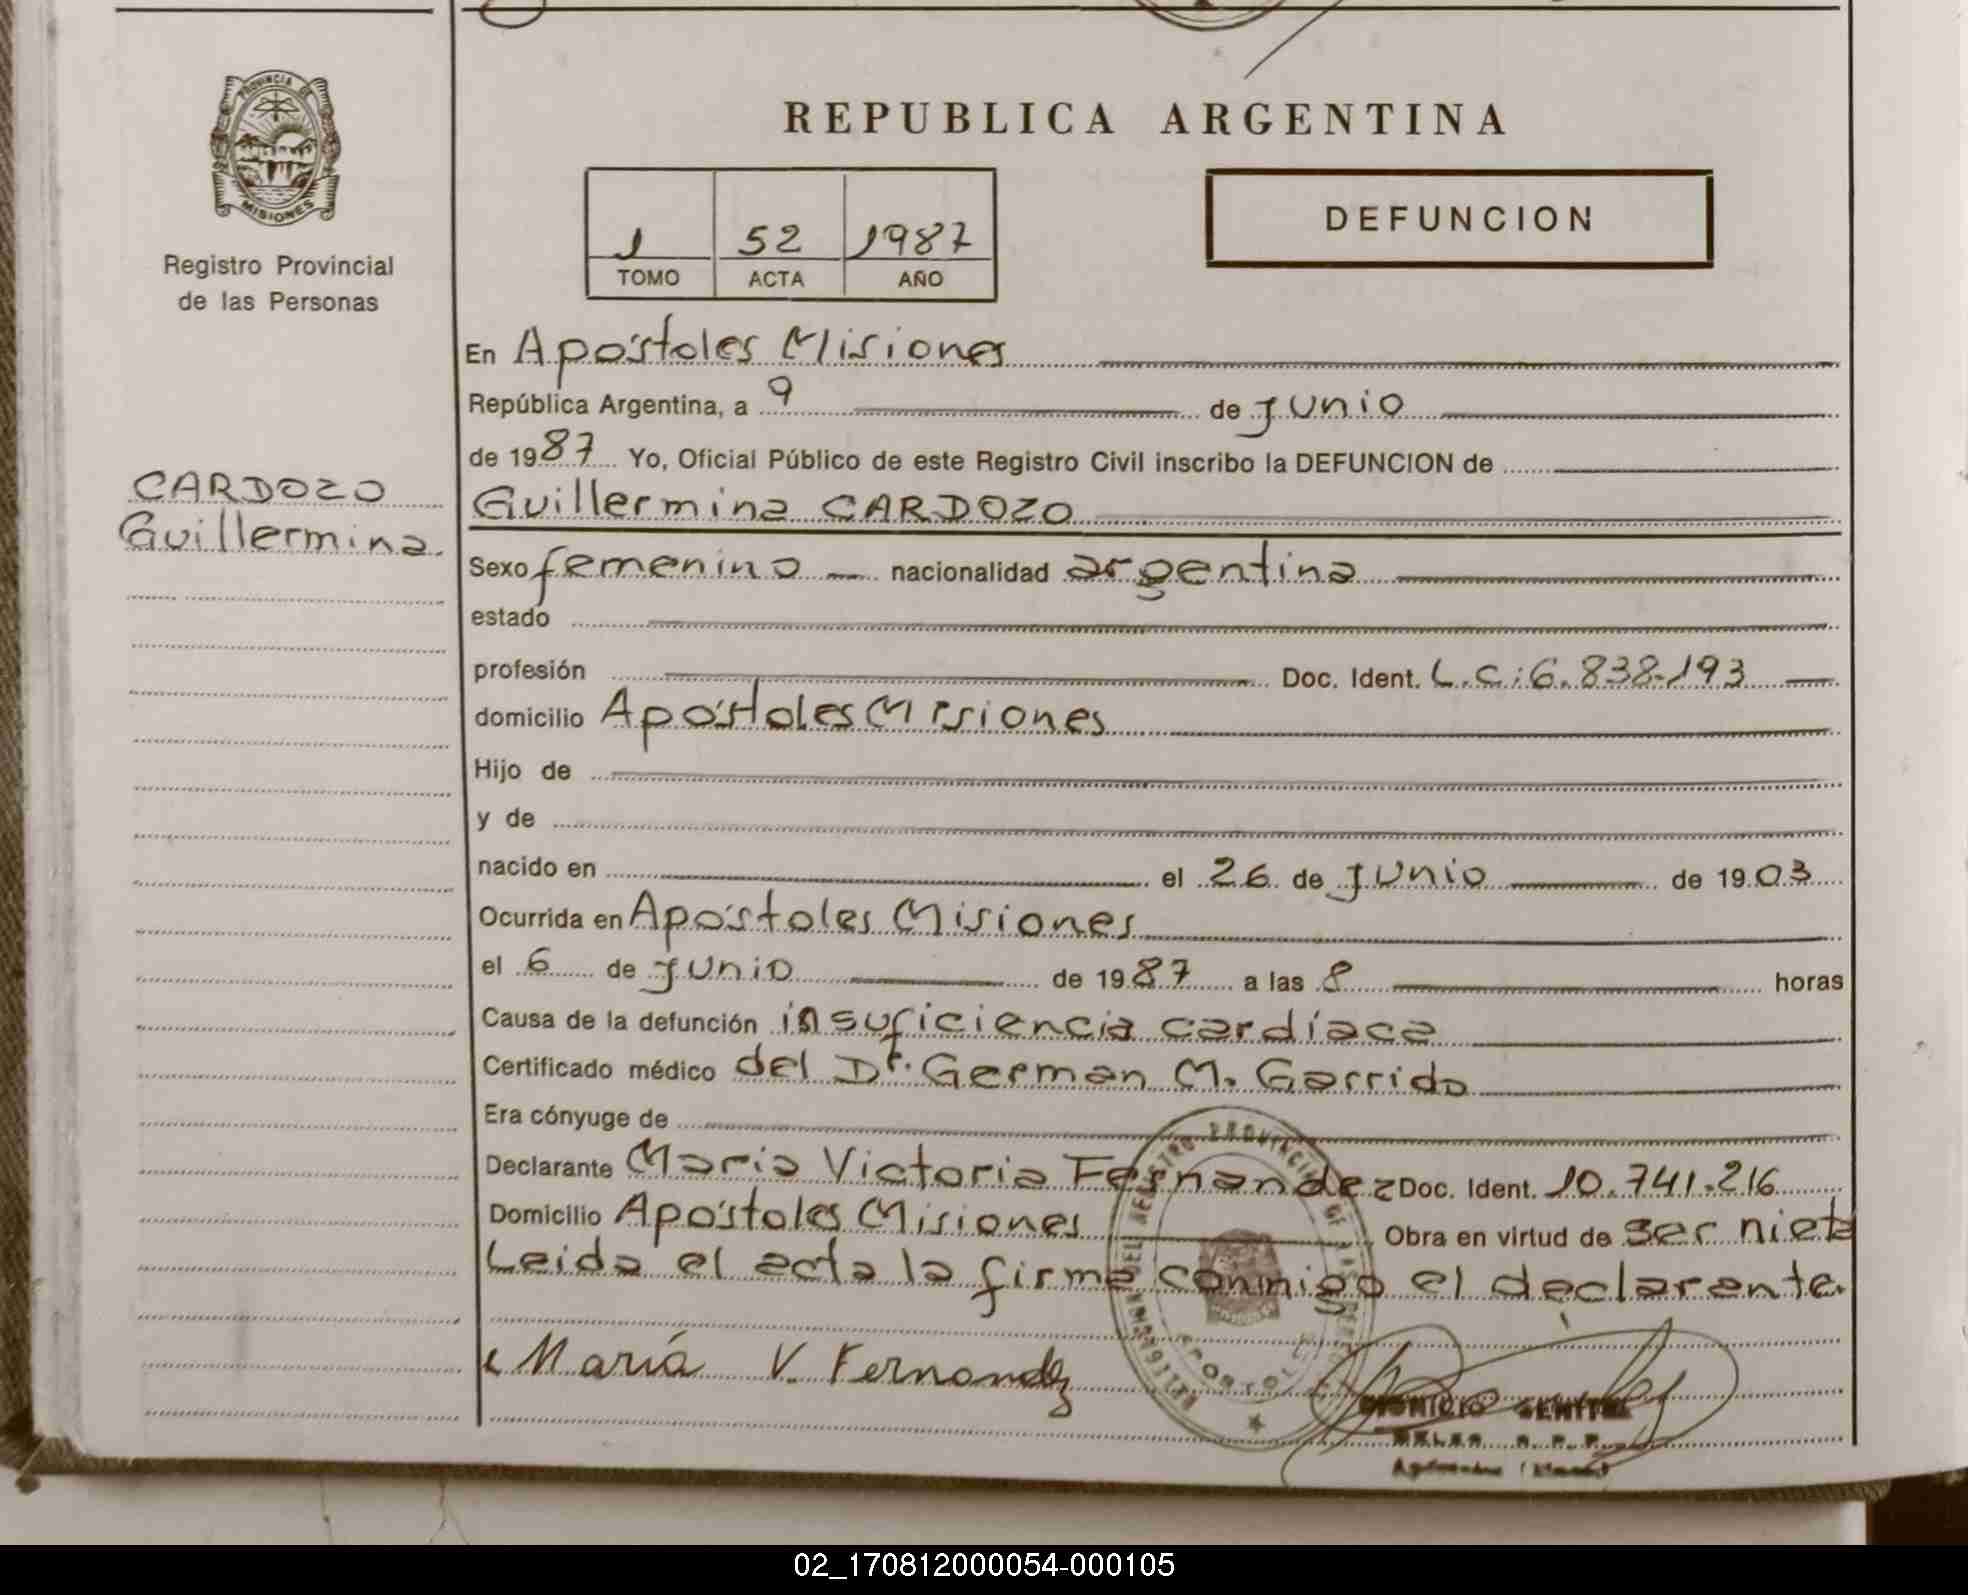 PROVINCIA DE
MISIONES
Registro Provincial
de las Personas
CARDOZO
Guillermina.
REPUBLICA ARGENTINA
1 52 1987
TOMO ACTA AÑO
DEFUNCION
En Apóstoles Misiones
República Argentina, a 9 de Junio
de 1987 Yo, Oficial Público de este Registro Civil inscribo la DEFUNCION de
Guillermina CARDOZO
Sexo femenino nacionalidad argentina
estado
profesión Doc. Ident. L.C: 6.838.193
domicilio Apóstoles Misiones
Hijo de
y de
nacido en el 26 de Junio de 1903
Ocurrida en Apóstoles Misiones
el 6 de Junio de 1987 a las 8 horas
Causa de la defunción insuficiencia cardíaca
Certificado médico del Dr. German M. Garrido
Era cónyuge de
Declarante Maria Victoria Fernandez Doc. Ident. 10.741.216
Domicilio Apóstoles Misiones Obra en virtud de ser nieta
Leida el acta la firma conmigo el declarante.
María V. Fernandez
02_170812000054-000105